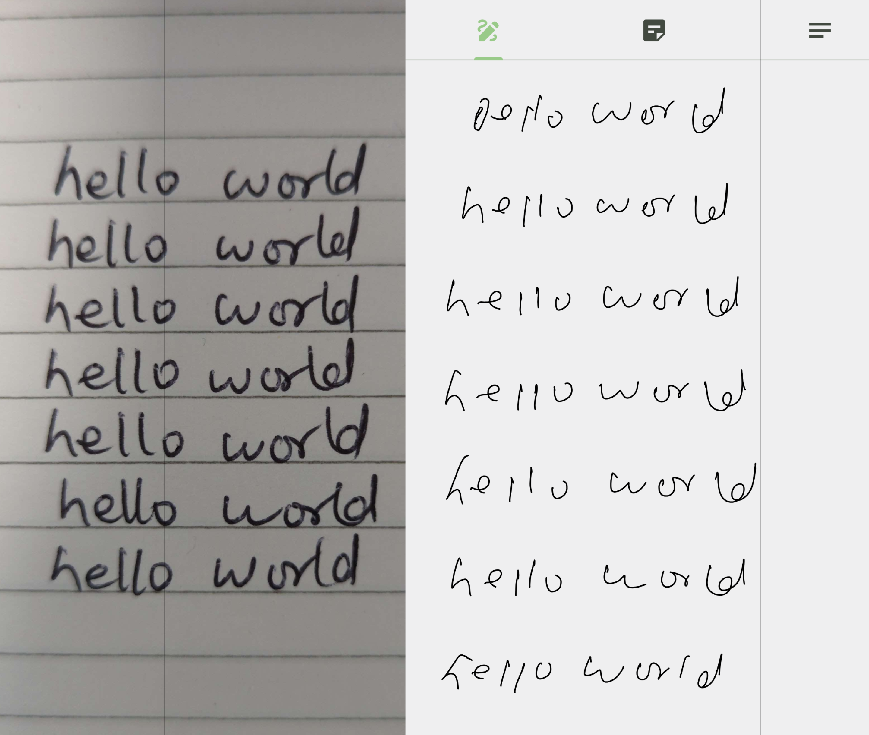 hello world
hello world
hello world
hello world
hello world
hello world
hello world
hello world
hello world
hello world
hello world
hello world
hello world
hello world